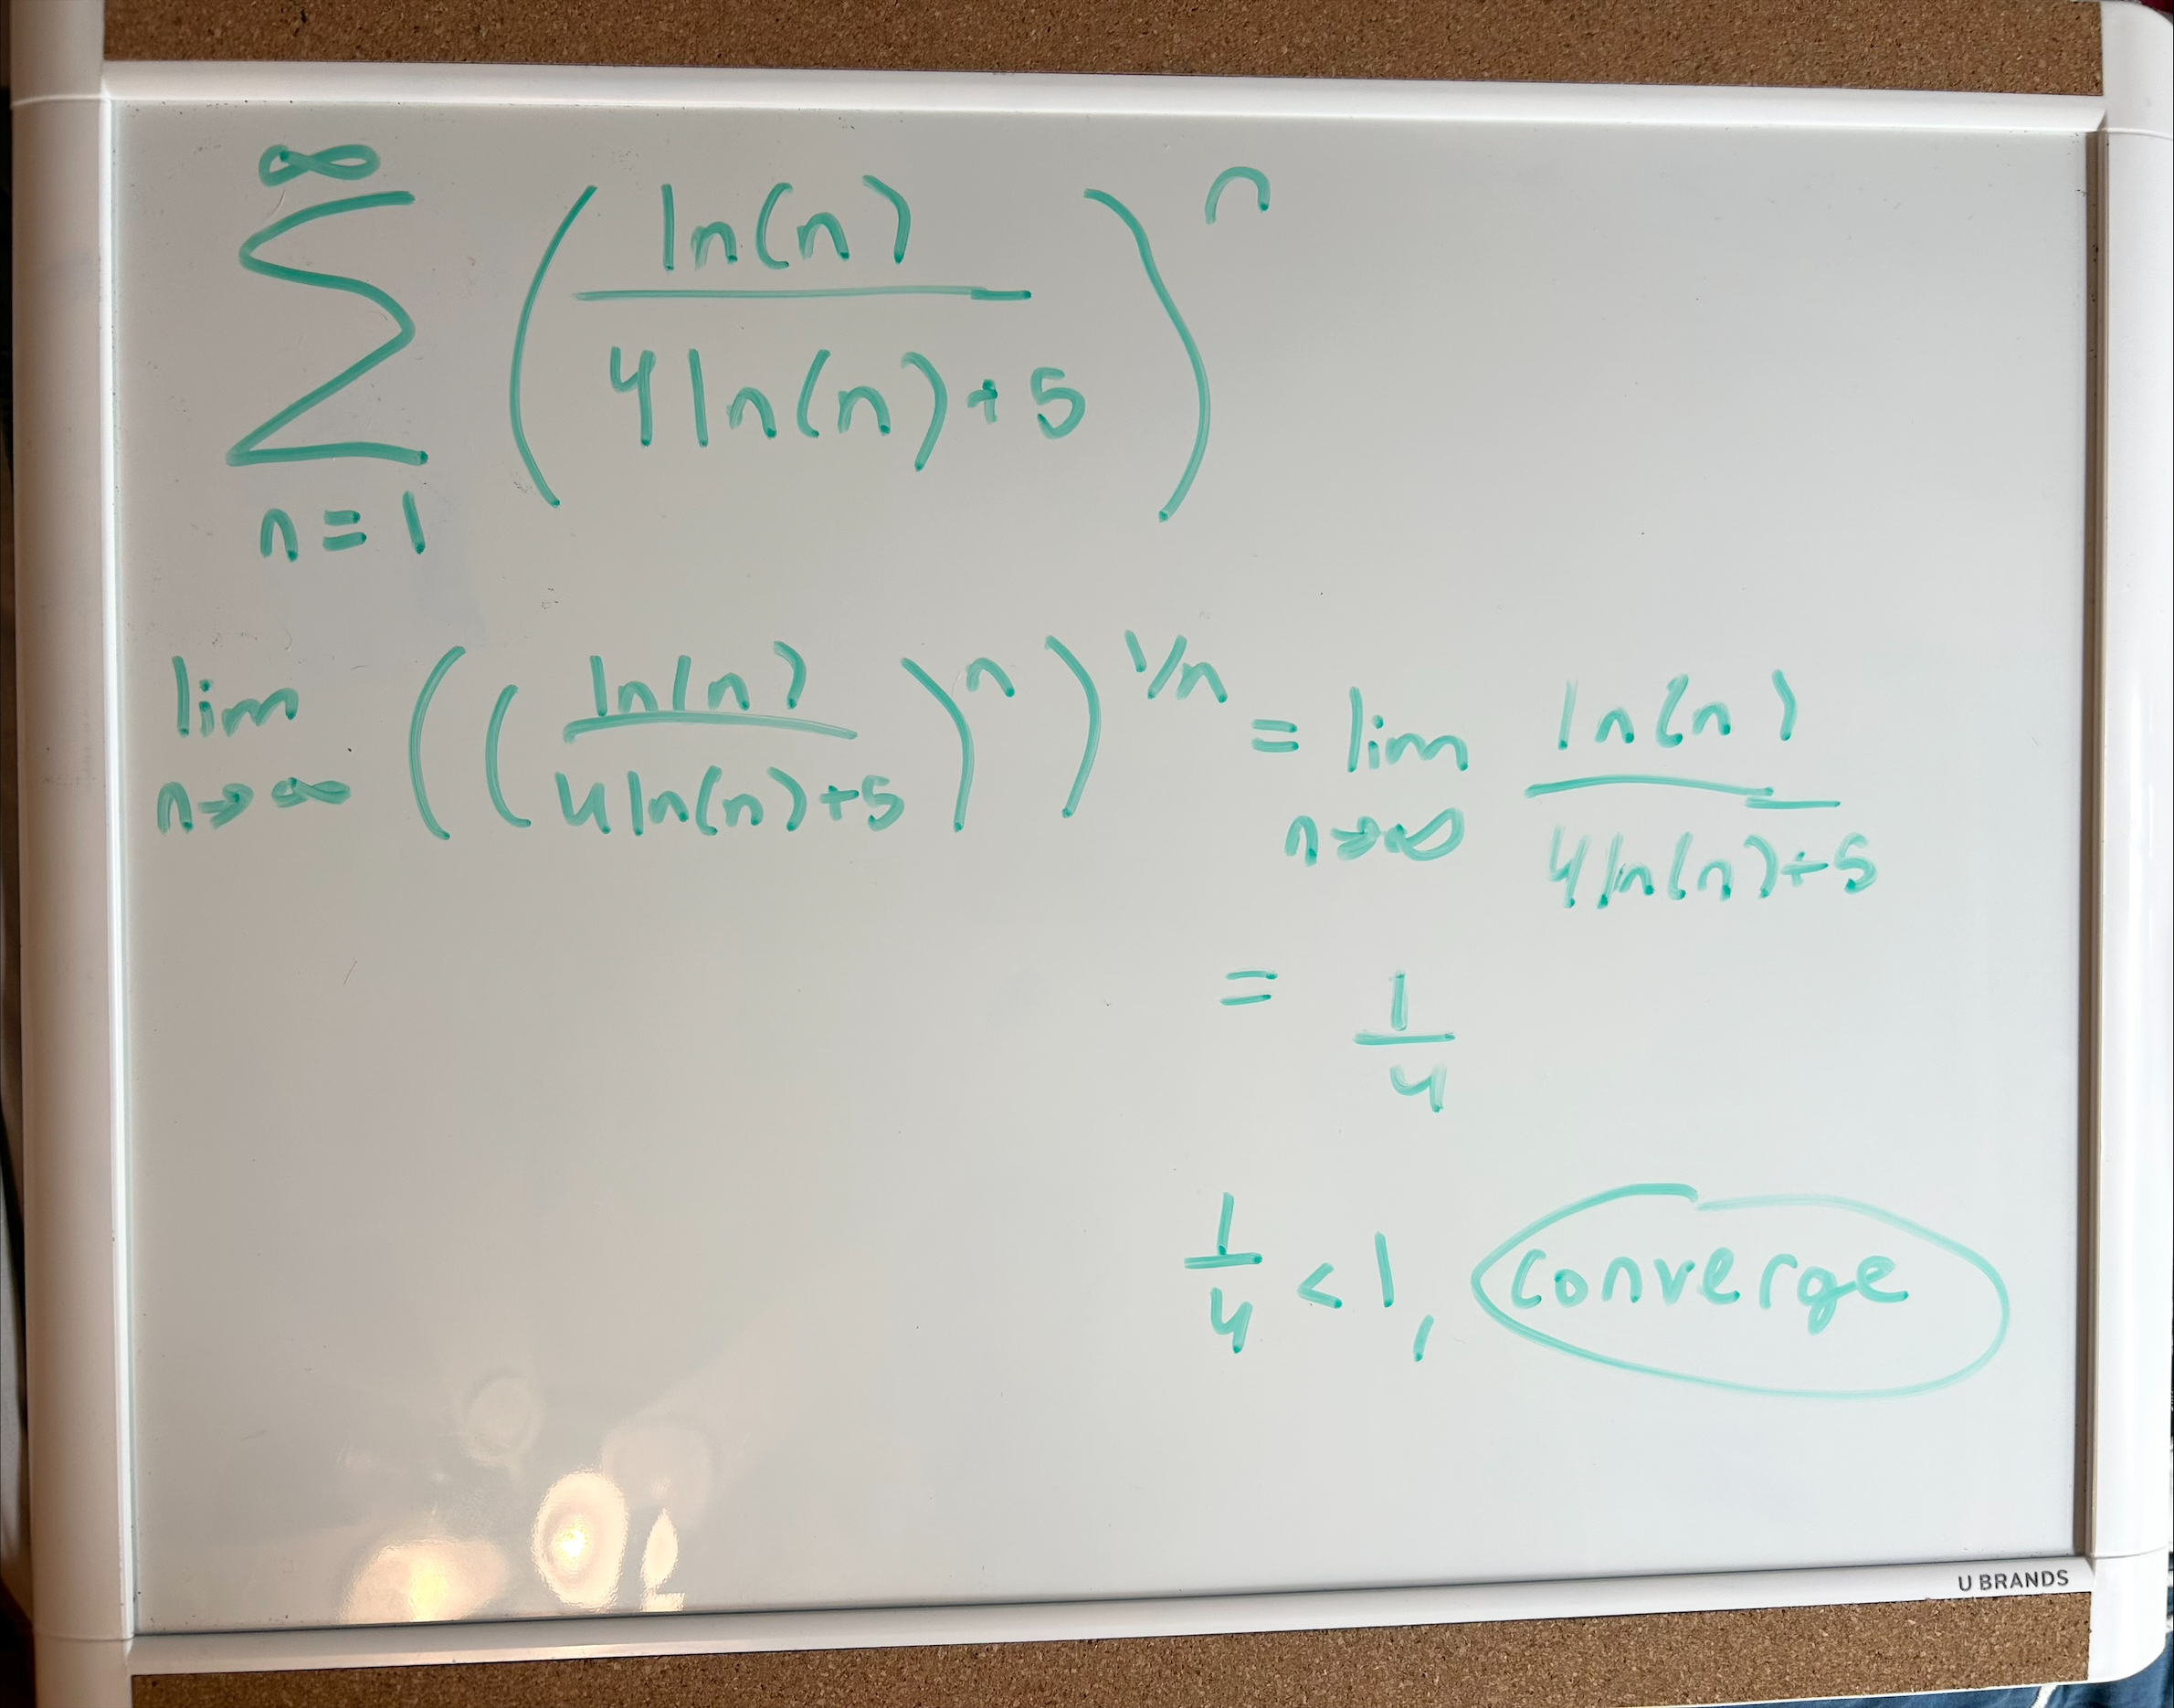 ∞
∑ ( ln(n) / 4ln(n)+5 )^n
n=1
lim n→∞ (( ln(n) / 4ln(n)+5 )^n )^1/n = lim n→∞ ln(n) / 4ln(n)+5
= 1/4
1/4 < 1, converge
U BRANDS